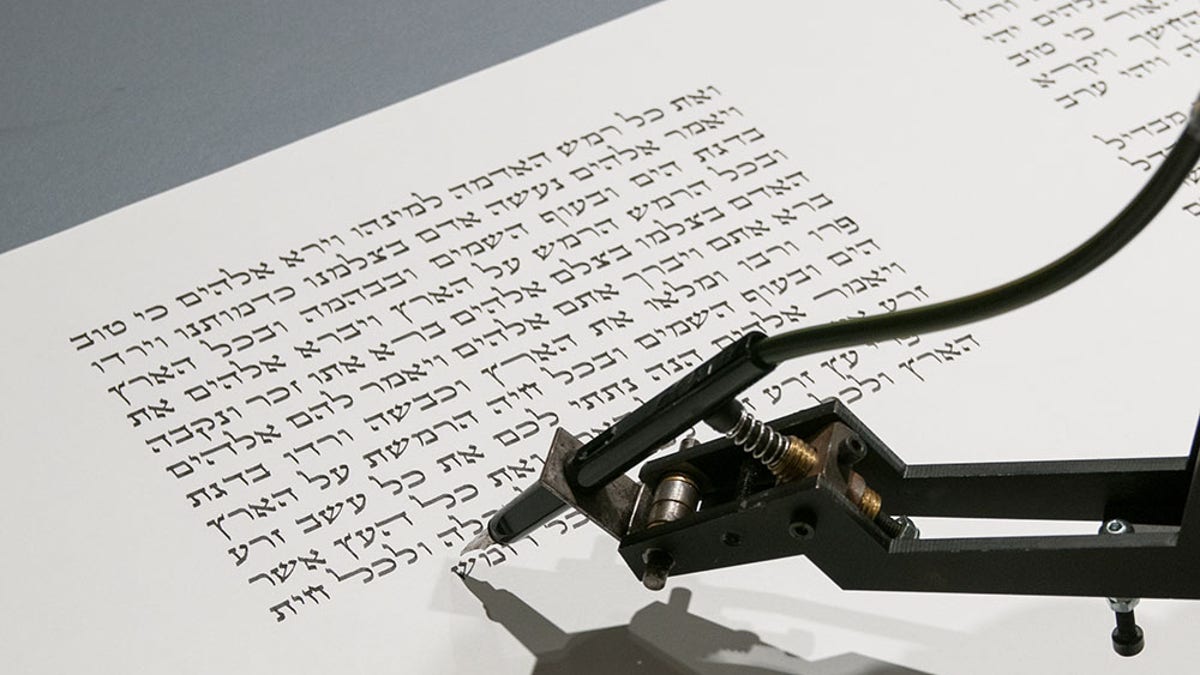 ורוח
אלהים
האור כי טוב
החשך
ויהי ערב
מבדיל
ואת כל רמש האדמה למינהו וירא אלהים כי טוב
ויאמר אלהים נעשה אדם בצלמנו כדמותנו וירדו
בדגת הים ובעוף השמים ובבהמה ובכל הארץ
ובכל הרמש הרמש על הארץ ויברא אלהים את
האדם בצלמו בצלם אלהים ברא אתו זכר ונקבה
ברא אתם ויברך אתם אלהים ויאמר להם אלהים
פרו ורבו ומלאו את הארץ וכבשה ורדו בדגת
הים ובעוף השמים ובכל חיה הרמשת על הארץ
ויאמר אלהים הנה נתתי לכם את כל עשב זרע
זרע ואת כל העץ אשר
עץ זרע ולכל חית
הארץ ולכל רומש